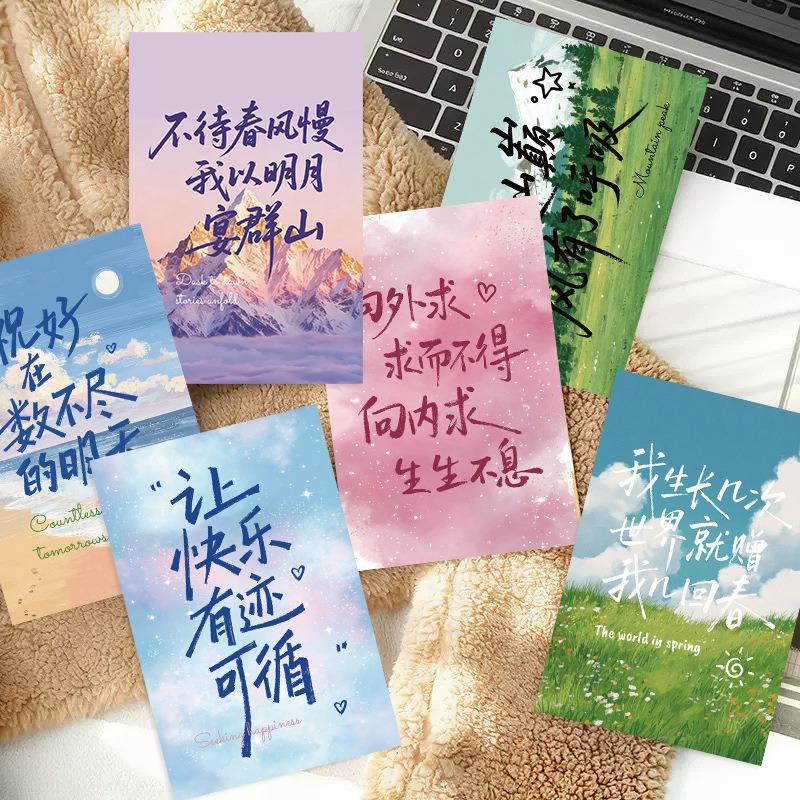 不待春风慢
我以明月
宴群山
Dusk to dawn
stories unfold
巅
风有了呼吸
Mountain peak
祝好
在
数不尽
的明天
Countless
tomorrows
向外求
求而不得
向内求
生生不息
"让
快乐
有迹
可循"
Seeking happiness
我生长几次
世界就赠
我几回春
The world in spring